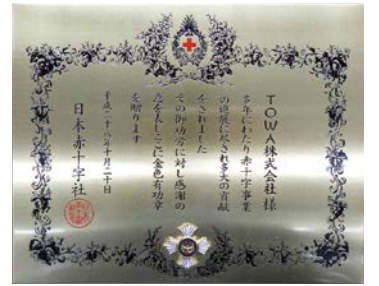 TOWA株式会社 様
多年にわたり赤十字事業
の進展に尽され多大の貢献
をされました
その御功労に対し感謝の
意を表しここに金色有功章
を贈ります
平成二十八年十月二十日
日本赤十字社